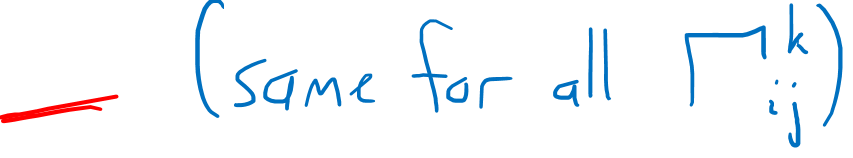 (same for all Γ^k_ij)